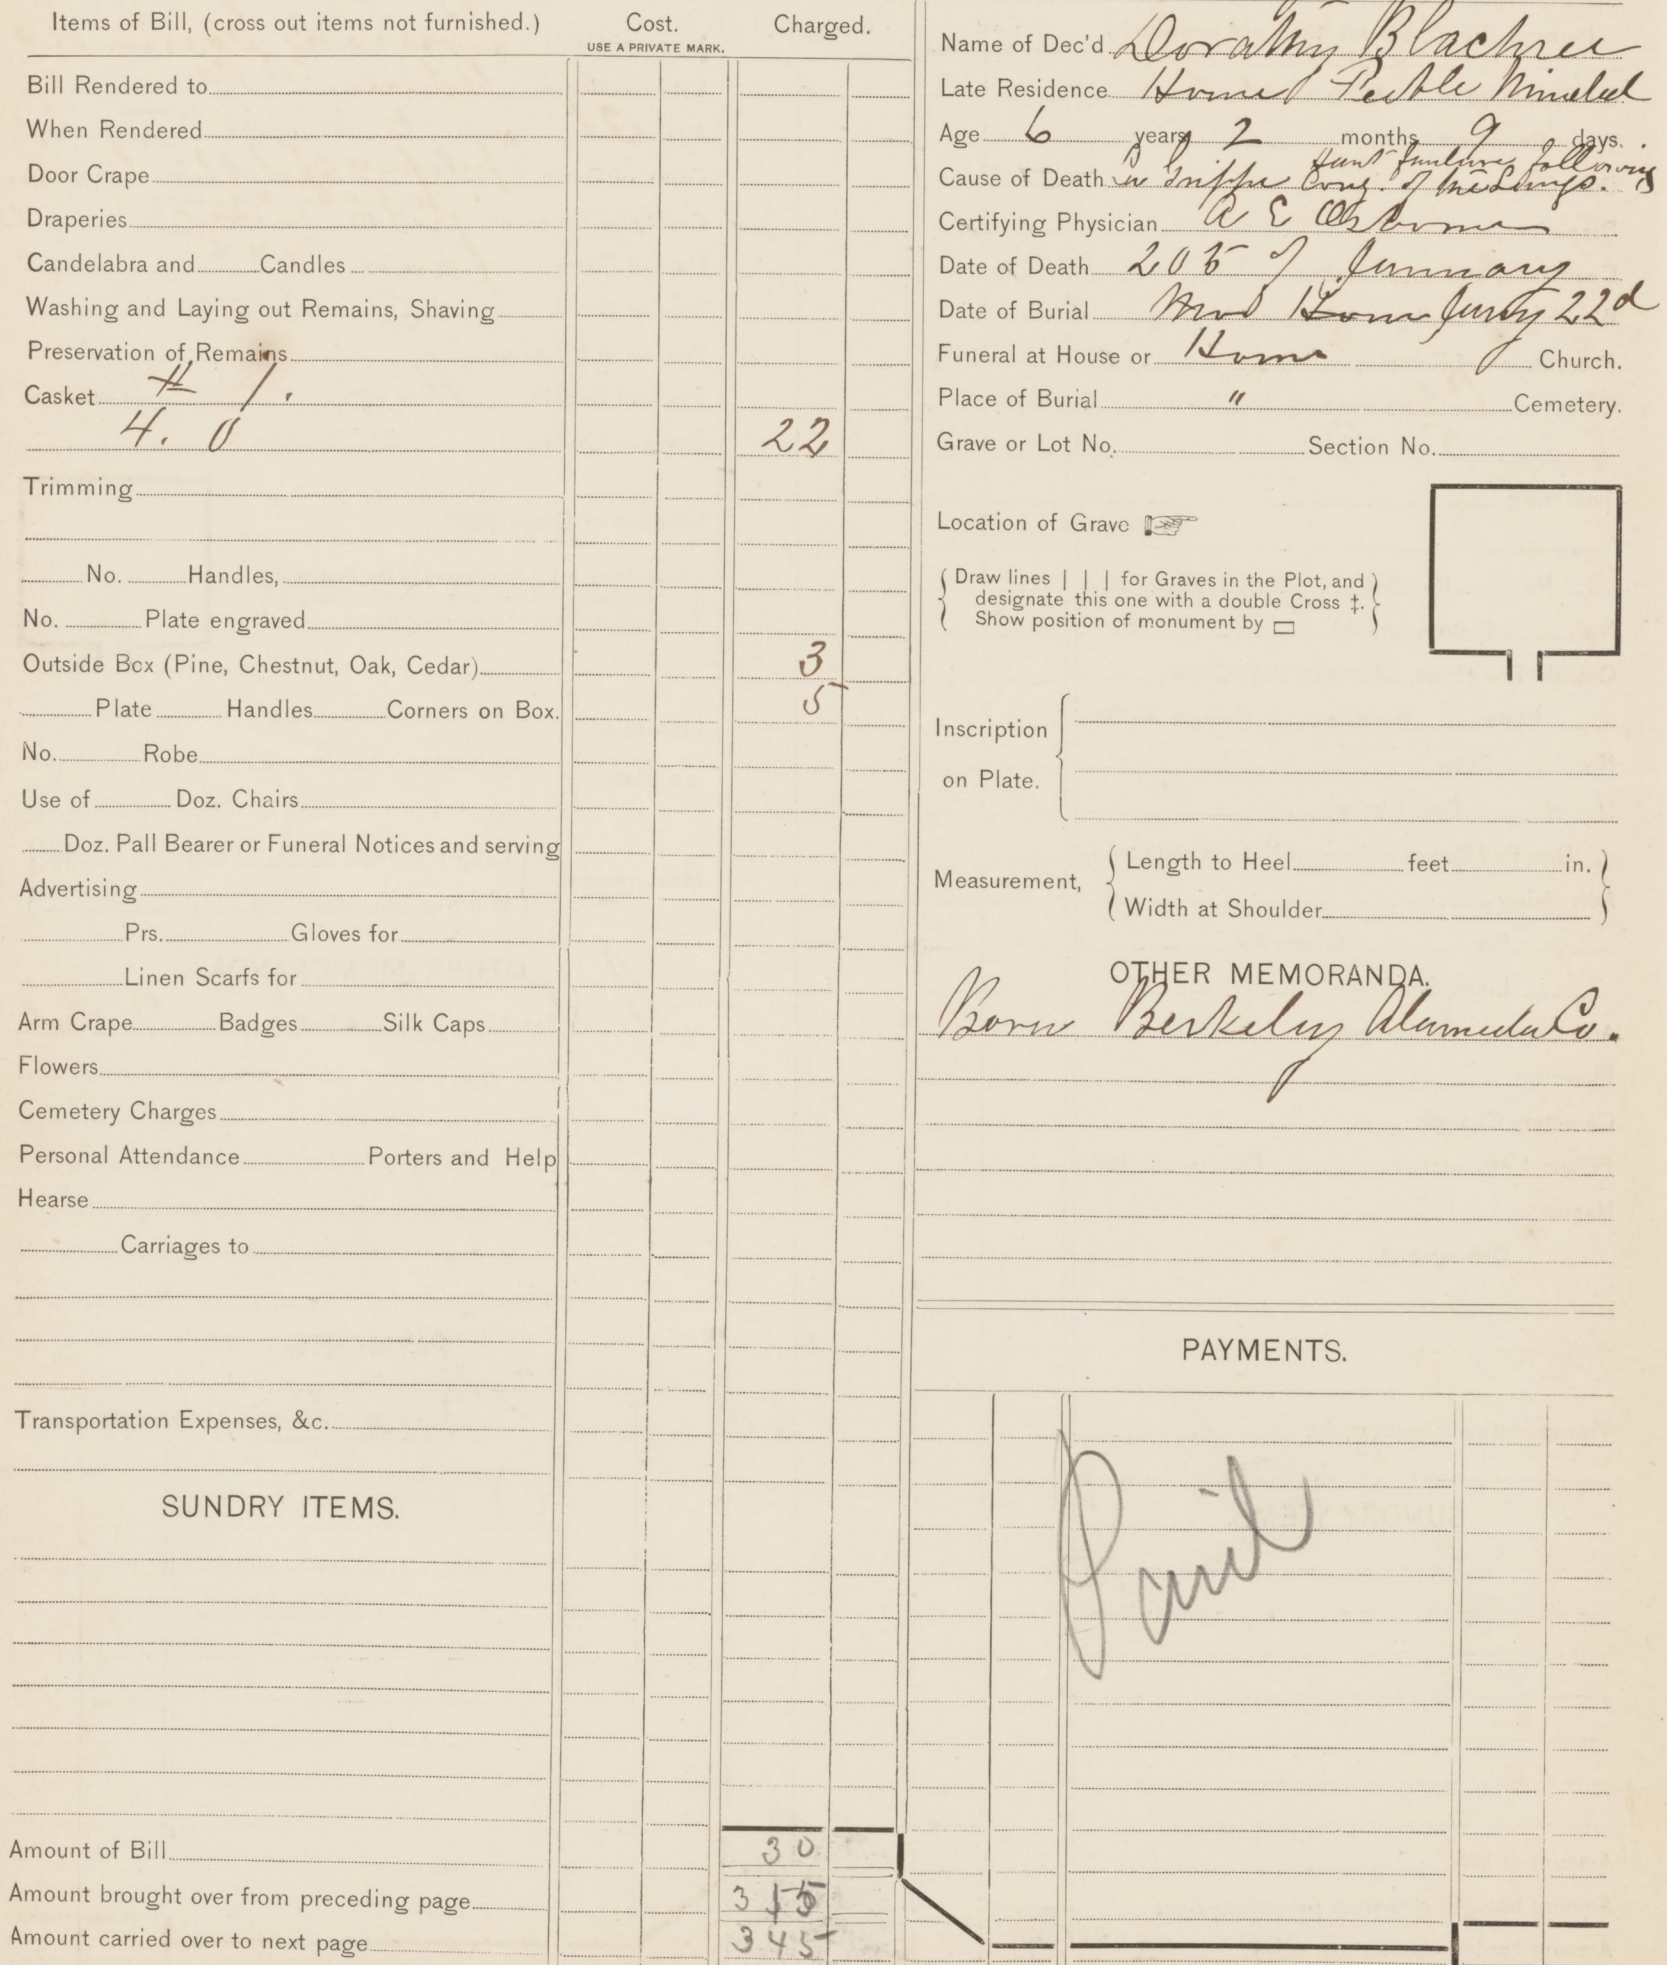 Items of Bill, (cross out items not furnished.) Cost. Charged.
USE A PRIVATE MARK.
Bill Rendered to
When Rendered
Door Crape
Draperies
Candelabra and Candles
Washing and Laying out Remains, Shaving
Preservation of Remains
Casket # 1.
4. 0 22
Trimming
No. Handles,
No. Plate engraved
Outside Box (Pine, Chestnut, Oak, Cedar) 3
Plate Handles Corners on Box. 5
No. Robe
Use of Doz. Chairs
Doz. Pall Bearer or Funeral Notices and serving
Advertising
Prs. Gloves for
Linen Scarfs for
Arm Crape Badges Silk Caps
Flowers
Cemetery Charges
Personal Attendance Porters and Help
Hearse
Carriages to
Transportation Expenses, &c.
SUNDRY ITEMS.
Amount of Bill 30
Amount brought over from preceding page 315
Amount carried over to next page 345
Name of Dec'd Dorathy
Late Residence Home
Age 6 years 2 months 9 days.
following
Cause of Death La Grippe Cong. of the Lungs.
Certifying Physician A E Osborne
Date of Death of January
Date of Burial Home 22d
Funeral at House or Home Church.
Place of Burial " Cemetery.
Grave or Lot No. Section No.
Location of Grave
Draw lines | | | for Graves in the Plot, and
designate this one with a double Cross ‡.
Show position of monument by
Inscription
on Plate.
Measurement, Length to Heel feet in.
Width at Shoulder
OTHER MEMORANDA.
Born Berkeley Alameda Co.
PAYMENTS.
Paid